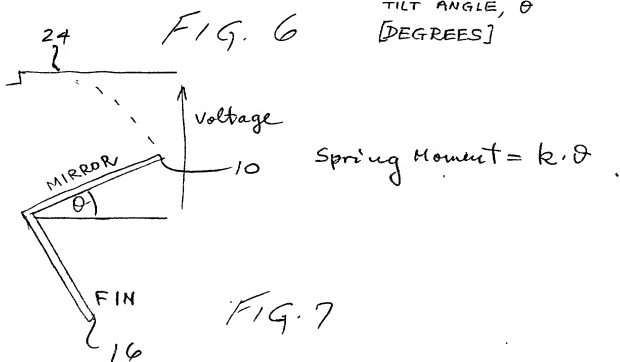 FIG. 6
TILT ANGLE, θ
[DEGREES]
24
Voltage
MIRROR
10
θ
Spring Moment = k·θ
FIN
16
FIG. 7